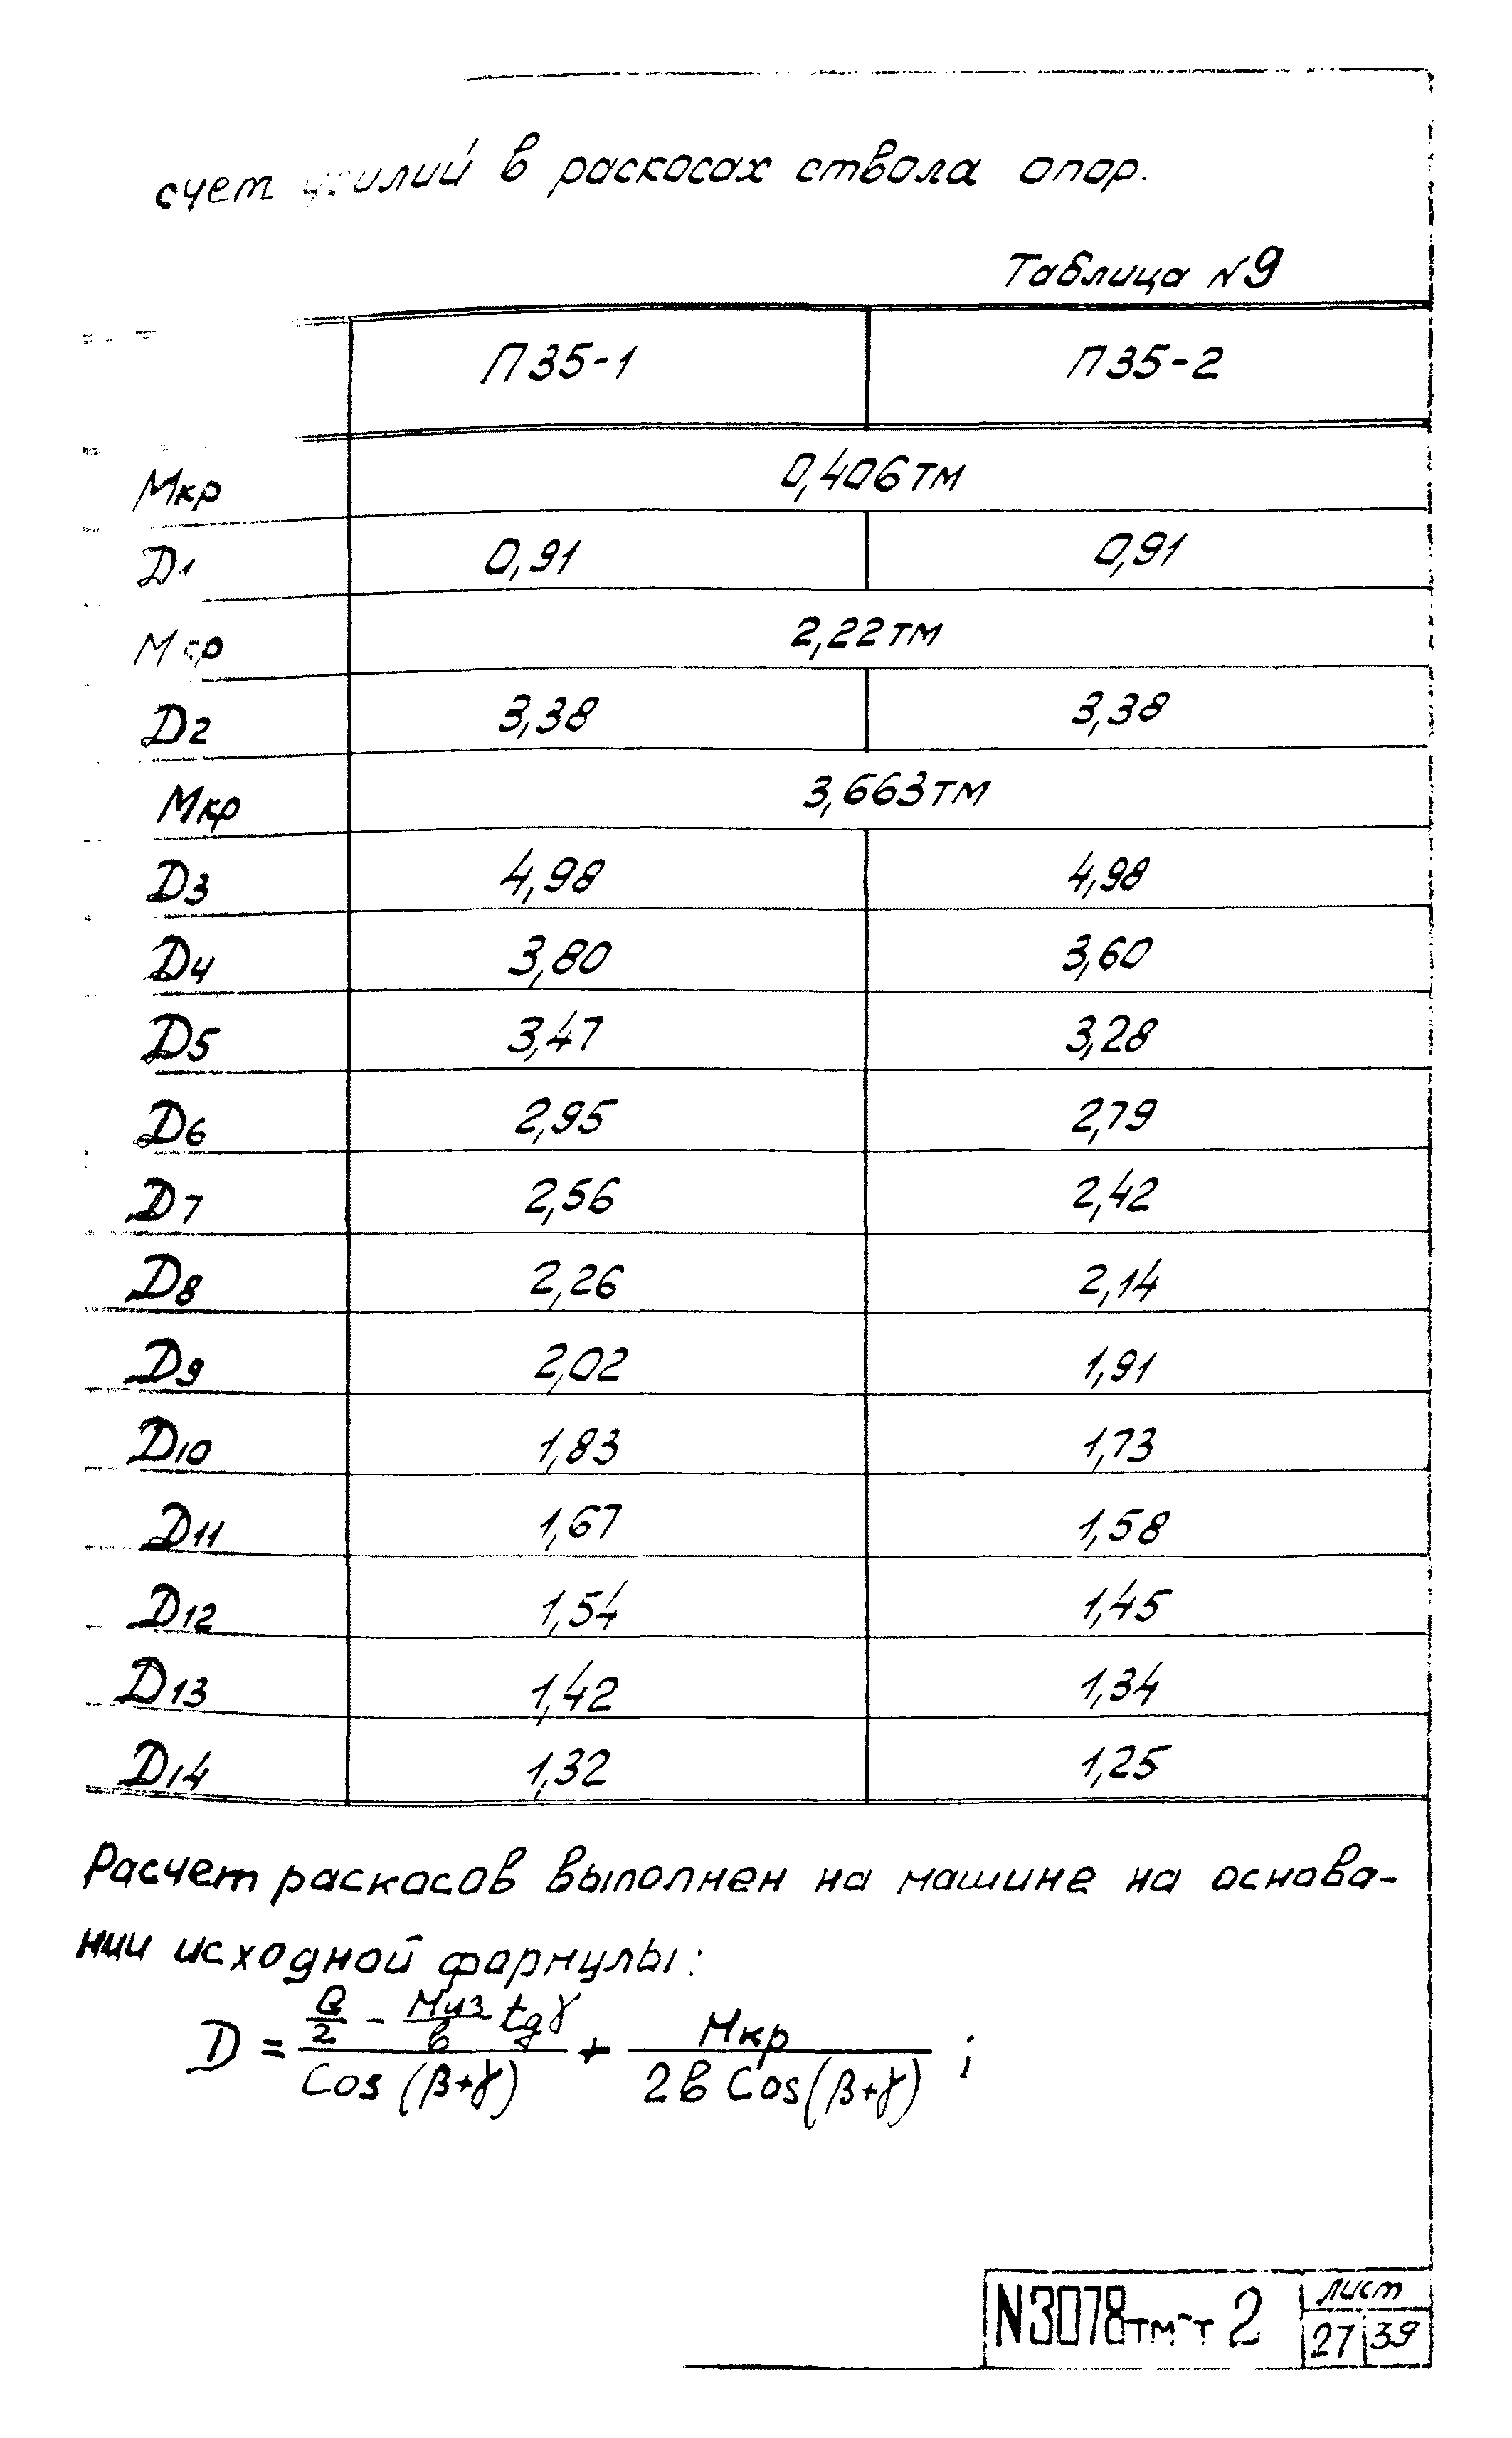 счет усилий в раскосах ствола опор.
Таблица N9
П35-1 П35-2
Мкр 0,406тм
D1 0,91 0,91
Мкр 2,22тм
D2 3,38 3,38
Мкр 3,663тм
D3 4,98 4,98
D4 3,80 3,60
D5 3,47 3,28
D6 2,95 2,79
D7 2,56 2,42
D8 2,26 2,14
D9 2,02 1,91
D10 1,83 1,73
D11 1,67 1,58
D12 1,54 1,45
D13 1,42 1,34
D14 1,32 1,25
Расчет раскосов выполнен на машине на основа-
нии исходной формулы:
D = (Q/2 - Mиз/в tgγ) / Cos (β+γ) + Мкр / 2в Cos(β+γ) ;
N3078тм-т 2
лист
27 39